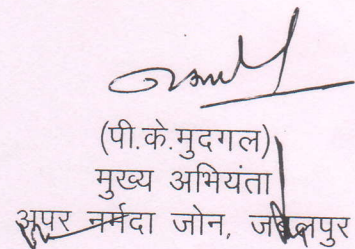 (पी.के.मुदगल)
मुख्य अभियंता
अपर नर्मदा जोन, जबलपुर